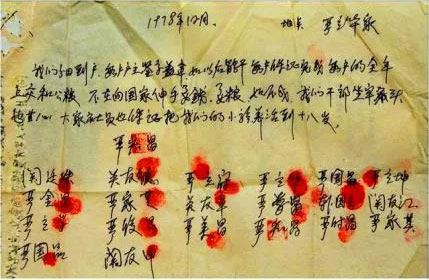 1978年12月. 地点 严立华家
我们分田到户,每户户主签字盖章,如以后能干,每户保证完成每户的全年
上交和公粮,不在向国家伸手要钱,要粮,如不成,我们干部坐牢杀头
也干心,大家社员也保证把我们的小孩养活到十八岁。
严宏昌
関廷珠 关友德 严立富 严立华 严国昌 严立坤
严金昌 严家芝 关友章 严学昌 韩国云 関友江
严立学 严俊昌 严美昌 严宏昌 严付昌 严家其
严国品 関友申